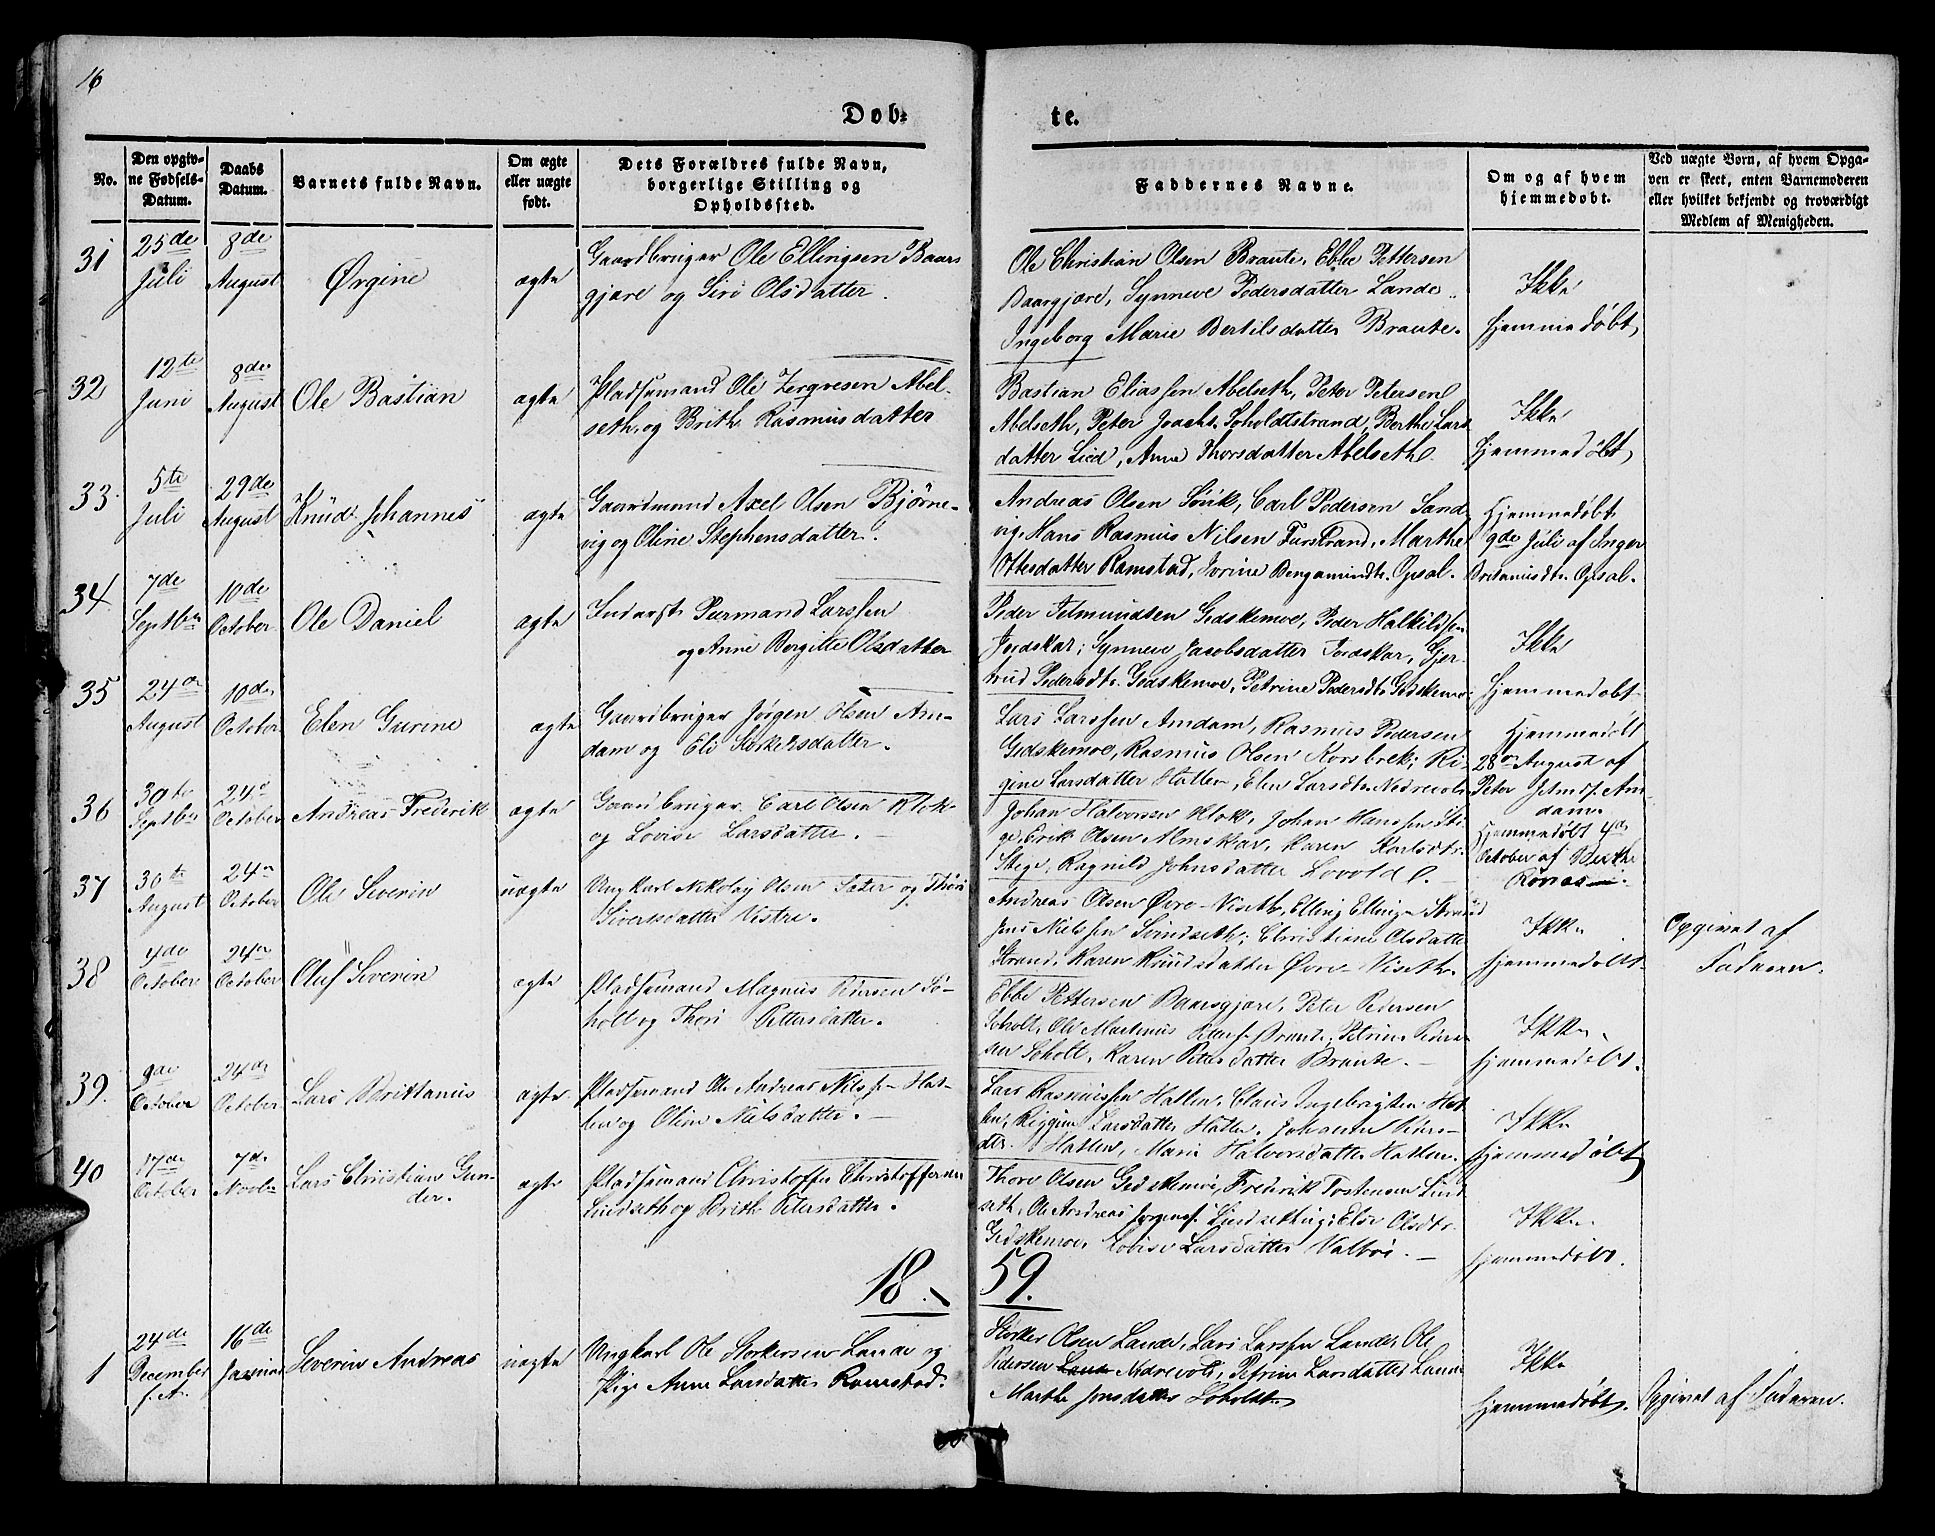 16
Døb-
te.
No.
Den opgiv-
ne Fødsels-
Datum.
Daabs
Datum.
Barnets fulde Navn.
Om ægte
eller uægte
født.
Dets Forældres fulde Navn,
borgerlige Stilling og
Opholdssted.
Faddernes Navne.
Om og af hvem
hjemmedøbt.
Ved uægte Børn, af hvem Opga-
ven er skeet, enten Barnemoderen
eller hvilket bekjendt og troværdigt
Medlem af Menigheden.
31
25de
Juli
8de
August
Ørgine
ægte
Gaardbruger Ole Ellingsen Baars
gjære og Siri Olsdatter.
Ole Christian Olsen Braute, Ebbe Pettersen
Baargjære, Synneve Pedersdatter Lande
Ingeborg Marie Bertilsdatter Braute.
Ikke
hjemmedøbt
32
12te
Juni
8de
August
Ole Bastian
ægte
Pladsemand Ole Abel-
seth og Brith Rasmusdatter
Bastian Eliassen Abelseth, Peter Petersen
Abelseth, Peter Joachs. Soholdtstrand, Berthe Lars
datter Lied, Anne Thorsdatter Abelseth.
Ikke
hjemmedøbt
33.
5te
Juli
29de
August
Knud Johannes
ægte
Gaardmand Axel Olsen Bjørne-
vig og Oline Stephensdatter.
Andreas Olsen Søvik, Carl Pedersen Sand
vig, Hans Rasmus Nilsen Furstrand, Marthe
Ottesdatter Ramstad, Ivrine Bengamindtr. Opsal.
Hjemmedøbt
9de Juli af Inger
Britanusdtr. Opsal.
34
7de
Septber
10de
October
Ole Daniel
ægte
Inderst Peermand Larssen
og Anne Bergitte Olsdatter
Peder Gidskemoe, Peder Halkildsen
Jordskar, Synneve Jacobsdatter Jordskar, Gjer-
trud Pedersdtr. Gidskemoe, Petrine Pedersdtr. Gidskemoe
Ikke
hjemmedøbt
35
24de
August
10de
October
Elen Gurine
ægte
Gaardbruger Jørgen Olsen Am-
dam og Eli Storkersdatter.
Lars Larssen Amdam, Rasmus Pedersen
Gidskemoe, Rasmus Olsen Korsbrek, Ri-
gine Larsdatter Hatlen, Elen Larsdtr. Nedrevold
Hjemmedøbt
28de August af
Peter Am-
dam.
36
30te
Septbr
24de
October
Andreas Frederik
ægte
Gaardbruger Carl Olsen Klok
og Lovise Larsdatter.
Johan Halvorssen Klok, Johan Hanssen Ste-
ge, Erik Olsen Almskar, Karen Karlsdtr.
Stege, Ragnild Johnsdatter Lovold.
Hjemmedøbt 4de
October af Berthe
Rønaes.
37
30te
August
24de
October
Ole Severin
uægte
Ungkarl Nikolay Olsen Sæter og Thori
Siversdatter Vistre.
Andreas Olsen Øvre-Viseth, Elling Ellings. Strand
Jens Nielssen Svindseth, Christiane Olsdatter
Strand, Karen Knudsdatter Øvre-Viseth.
Ikke
hjemmedøbt.
Opgivet af
Faderen.
38
4de
October
24de
October
Oluf Severin
ægte
Pladsemand Magnus Peersen So-
holt og Thori Pettersdatter.
Ebbe Pettersen Baarsgjære, Peter Pedersen
Soholt, Ole Martinus Braute, Petrine Peers-
Soholt, Karen Petersdatter Braute.
Ikke
hjemmedøbt.
39.
9de
October
24de
October
Lars Brittanus
ægte
Pladsemand Ole Andreas Nilss. Hat-
len og Oline Nielsdatter.
Lars Rasmussen Hatlen, Claus Ingebrigtsen Hat
len, Riggine Larsdatter Hatlen, Johanne Peers-
dtr. Hatlen, Marie Halvorsdatter Hatlen.
Ikke
hjemmedøbt
40
17de
October
7de
Novbr
Lars Christian Gun-
der.
ægte
Pladsemand Christoffer Christoffersen
Lindseth og Brith Petersdatter.
Thore Olsen Gidskemoe, Fredrik Tostensen Lind
seth, Ole Andreas Jørgens. Lindseth, Else Olsdtr.
Gidskemoe, Lovise Larsdatter Valbøe.
Ikke
hjemmedøbt.
18
59.
1
24de
December
f. A.
16de
Januar
Severin Andreas
uægte
Ungkarl Ole Storkersen Lande og
Pige Anne Larsdatter Ramstad.
Storker Olsen Lande, Lars Larssen Lande, Ole
Pedersen Nedrevold, Petrine Larsdatter Lande
Marthe Jonsdatter Soholdt.
Ikke
hjemmedøbt.
Opgivet af Faderen.